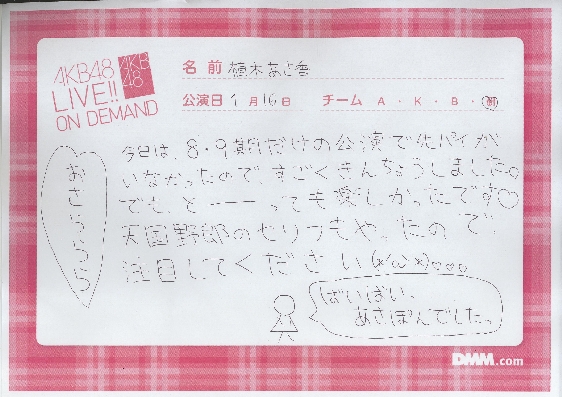 AKB48
LIVE!!
ON DEMAND
AKB
48
名前 植木あさ香
公演日 1月16日 チーム A・K・B・研
今日は、8・9期だけの公演で先パイが
いなかったので、すごくきんちょうしました。
でも、と———っても楽しかったです♡
天国野郎のセリフもやったので
注目してください(*'ω'*)♡♡♡
おさらうら
ばいばい、
あさぽんでした。
DMM.com